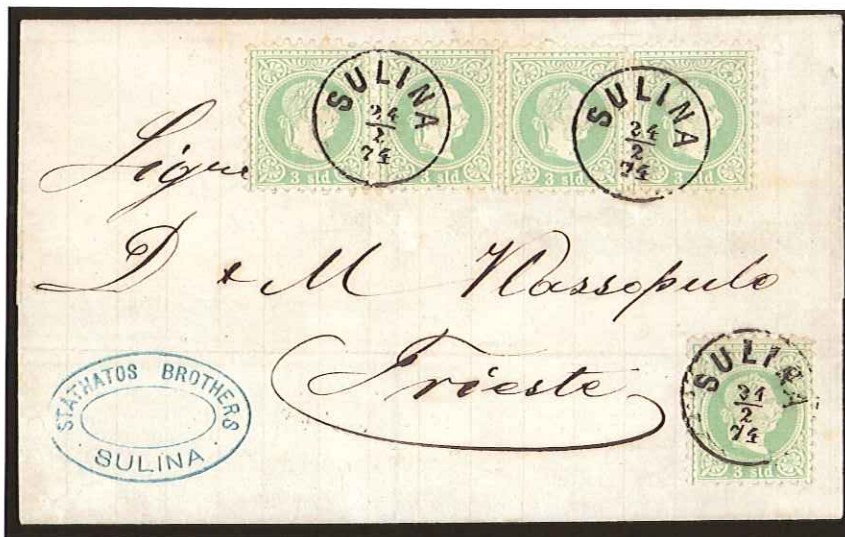 3 sld 3 sld 3 sld 3 sld
SULINA
24
2
74
SULINA
24
2
74
Sigri
D & M Vassopulo
Trieste
STATHATOS BROTHERS
SULINA
SULINA
24
2
74
3 sld